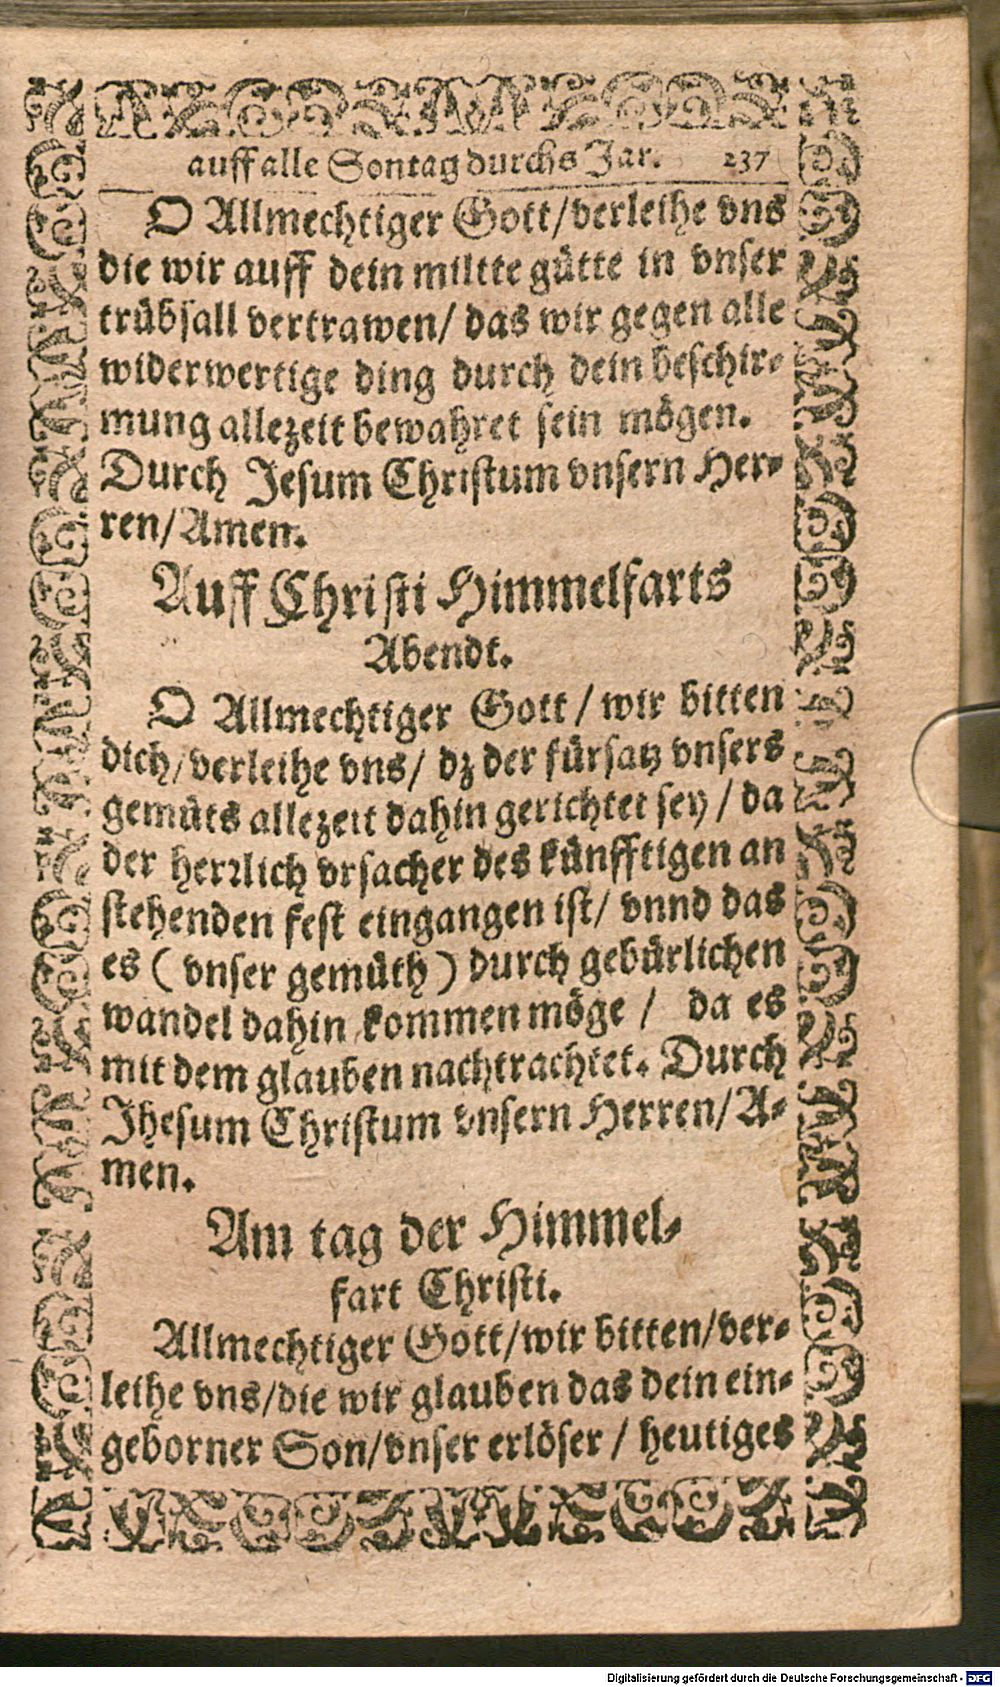 auff alle Sontag durchs Jar. 237
O Allmechtiger Gott/verleihe vns
die wir auff dein miltte gütte in vnser
trübsall vertrawen/ das wir gegen alle
widerwertige ding durch dein beschir-
mung allezeit bewahret sein mögen.
Durch Jesum Christum vnsern Her-
ren/Amen.
Auff Christi Himmelfarts
Abendt.
O Allmechtiger Gott / wir bitten
dich/verleihe vns/ dz der fürsatz vnsers
gemüts allezeit dahin gerichtet sey / da
der herrlich vrsacher des künfftigen an
stehenden fest eingangen ist/ vnnd das
es ( vnser gemüth ) durch gebürlichen
wandel dahin kommen möge / da es
mit dem glauben nachtrachtet. Durch
Jhesum Christum vnsern Herren/ A-
men.
Am tag der Himmel-
fart Christi.
Allmechtiger Gott/wir bitten/ver-
leihe vns/die wir glauben das dein ein-
geborner Son/vnser erlöser / heutiges
Digitalisierung gefördert durch die Deutsche Forschungsgemeinschaft - DFG